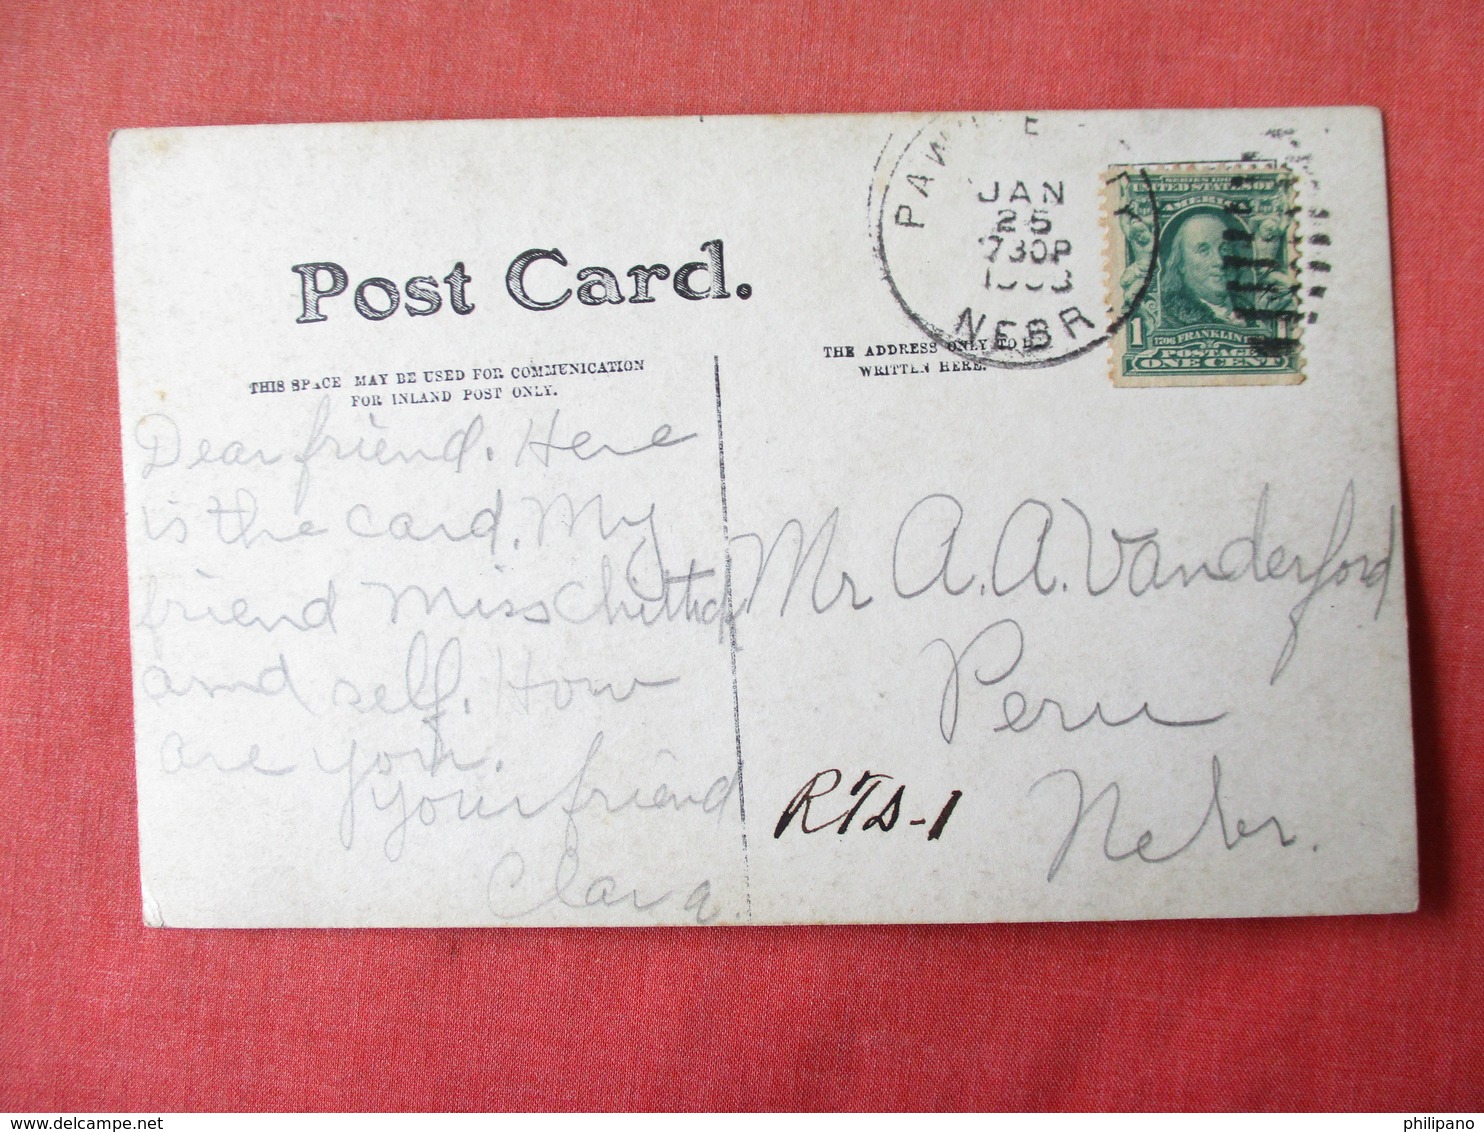 Post Card.
THIS SPACE MAY BE USED FOR COMMUNICATION
FOR INLAND POST ONLY.
THE ADDRESS ONLY TO BE
WRITTEN HERE.
JAN
25
730P
NEBR
UNITED STATES OF
AMERICA
1706 FRANKLIN
POSTAGE
ONE CENT
1
Dear friend. Here
is the card. My
friend Miss
and self. How
are you.
Your friend
Clara.
Mr A. A. Vanderford
Peru
Nebr.
RTS-1
www.delcampe.net
philipano